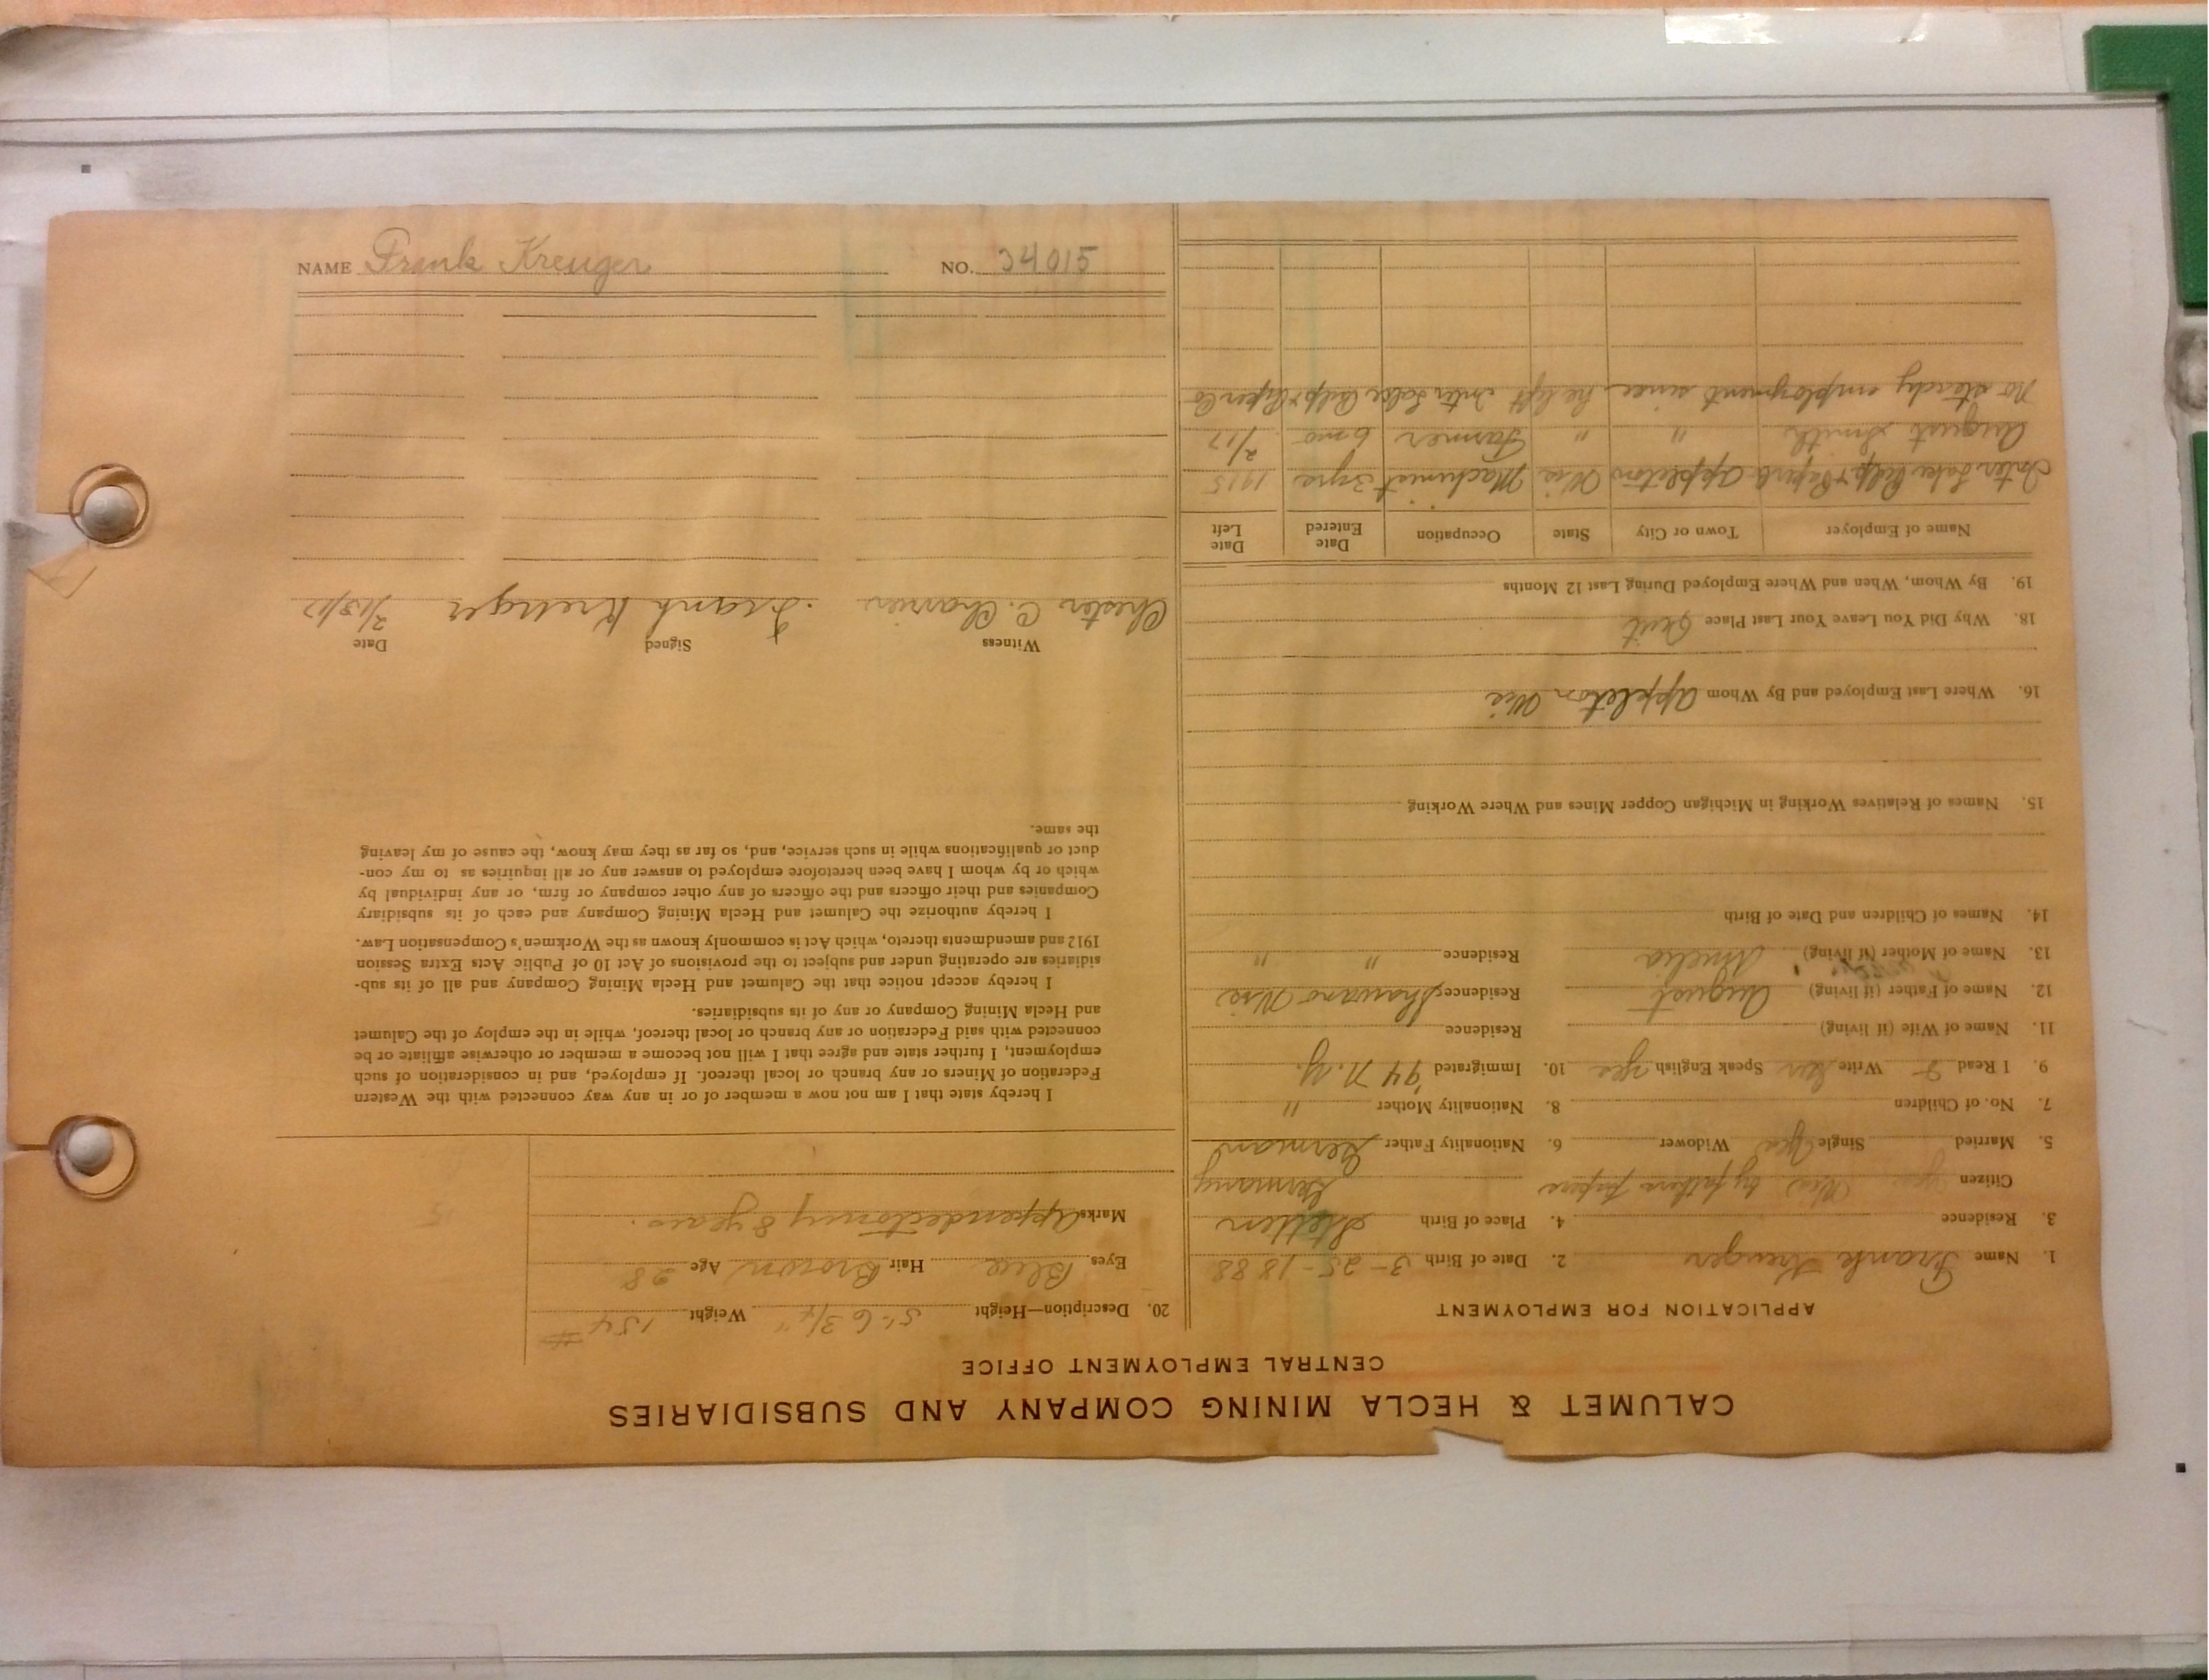 CALUMET & HECLA MINING COMPANY AND SUBSIDIARIES
CENTRAL EMPLOYMENT OFFICE
APPLICATION FOR EMPLOYMENT
1. Name Frank Kreuger 2. Date of Birth 3-25-1888
3. Residence 4. Place of Birth Stettin
Citizen yes Wis by fathers papers Germany
5. Married Single Yes Widower 6. Nationality Father German
7. No. of Children 8. Nationality Mother "
9. I Read & Write Speak English yes 10. Immigrated '94 N.Y.
11. Name of Wife (if living) Residence
12. Name of Father (if living) August Residence Shawano Wis
13. Name of Mother (if living) Amelia Residence " "
14. Names of Children and Date of Birth
15. Names of Relatives Working in Michigan Copper Mines and Where Working
16. Where Last Employed and By Whom Appleton Wis
18. Why Did You Leave Your Last Place Quit
19. By Whom, When and Where Employed During Last 12 Months
Name of Employer Town or City State Occupation Date Entered Date Left
Inter Lake Pulp & Paper Co Appleton Wis Machinist 3 yrs 1915
August Smith " " Farmer 6 mo 2/17
No steady employment since he left Inter Lake Pulp & Paper Co
20. Description—Height 5'-6 3/4" Weight 154 #
Eyes Blue Hair Brown Age 28
Marks Appendectomy 8 years.
I hereby state that I am not now a member of or in any way connected with the Western
Federation of Miners or any branch or local thereof. If employed, and in consideration of such
employment, I further state and agree that I will not become a member or otherwise affiliate or be
connected with said Federation or any branch or local thereof, while in the employ of the Calumet
and Hecla Mining Company or any of its subsidiaries.
I hereby accept notice that the Calumet and Hecla Mining Company and all of its sub-
sidiaries are operating under and subject to the provisions of Act 10 of Public Acts Extra Session
1912 and amendments thereto, which Act is commonly known as the Workmen's Compensation Law.
I hereby authorize the Calumet and Hecla Mining Company and each of its subsidiary
Companies and their officers and the officers of any other company or firm, or any individual by
which or by whom I have been heretofore employed to answer any or all inquiries as to my con-
duct or qualifications while in such service, and, so far as they may know, the cause of my leaving
the same.
Witness Signed Date
Chester C. Frank Kreuger 2/13/17
NAME Frank Kreuger NO. 24015